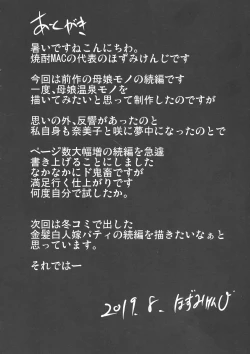 あとがき
暑いですねこんにちわ。
焼酎MACの代表のほずみけんじです
今回は前作の母娘モノの続編です
一度、母娘温泉モノを
描いてみたいと思って制作したのですが
思いの外、反響があったのと
私自身も奈美子と咲に夢中になったので
ページ数大幅増の続編を急遽
書き上げることにしました
なかなかにド鬼畜ですが
満足行く仕上がりです
何度自分で試したか。
次回は冬コミで出した
金髪白人嫁パティの続編を描きたいなぁと
思っています。
それではー
2019.8. ほずみけんじ